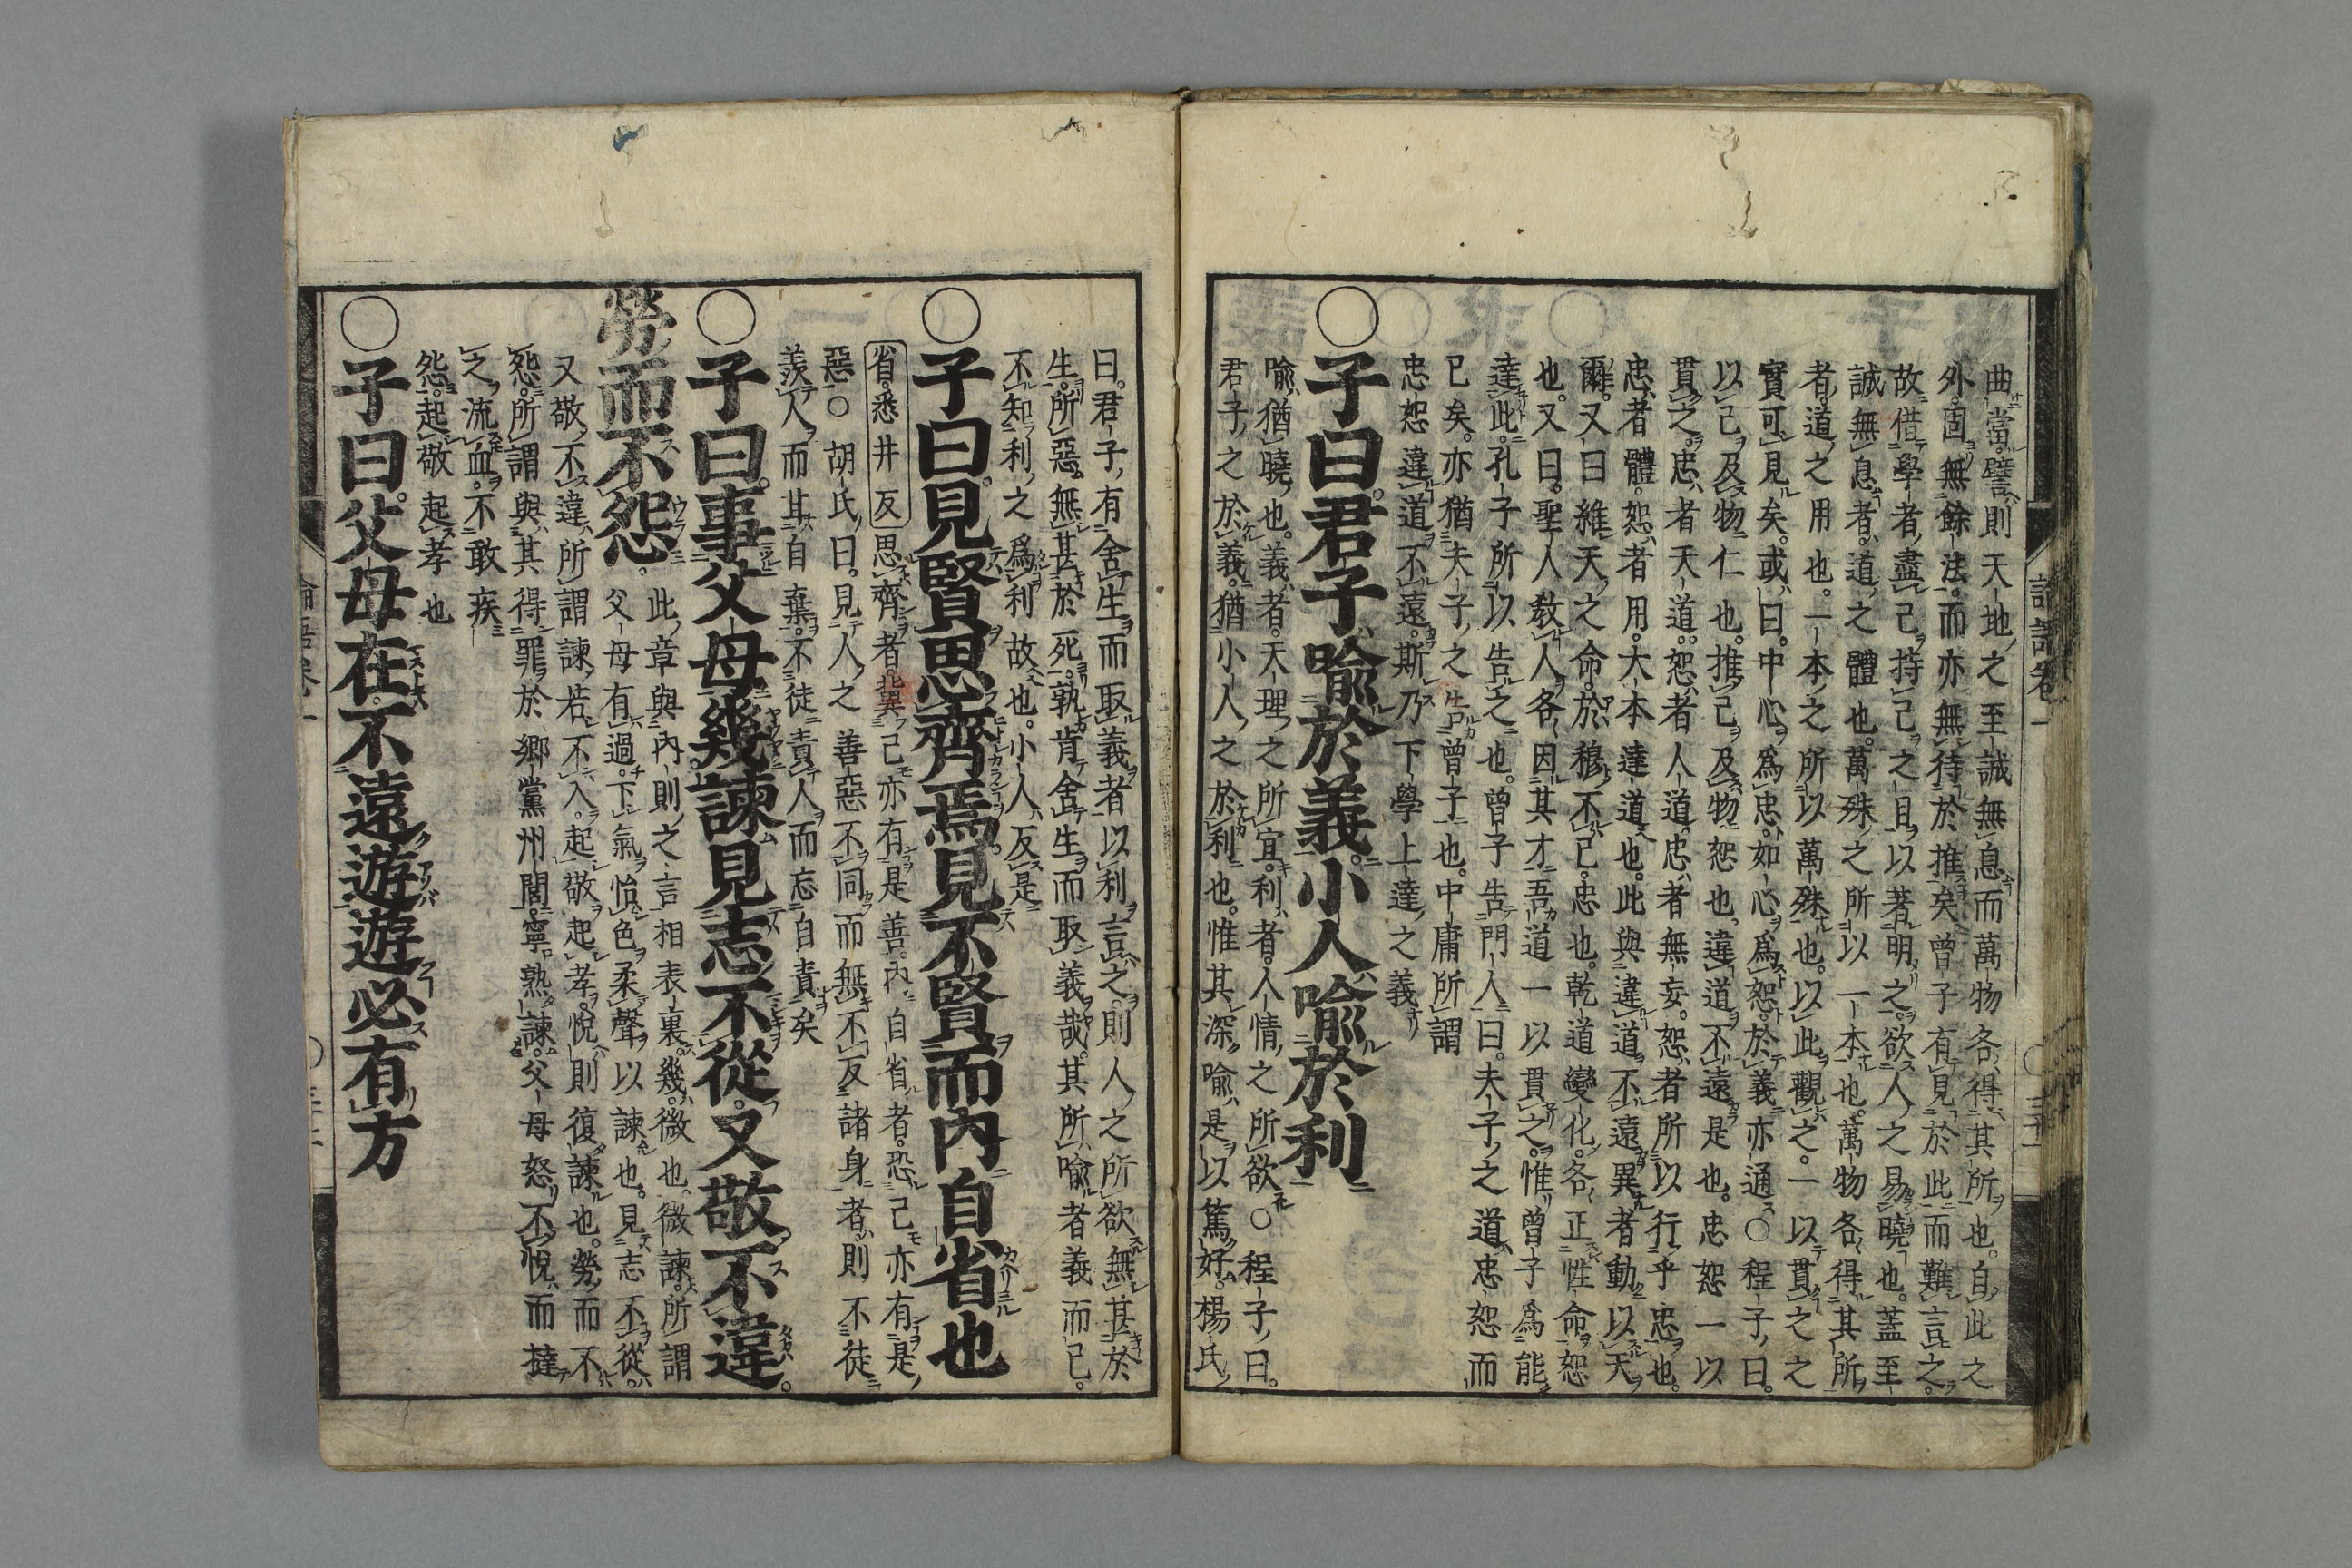 曲當譬則天地之至誠無息而萬物各得其所也自此之
外固無餘法而亦無待於推矣曾子有見於此而難言之
故借學者盡己持己之目以著明之欲人之易曉也蓋至
誠無息者道之體也萬殊之所以一本也萬物各得其所
者道之用也一本之所以萬殊也以此觀之一以貫之之
實可見矣或曰中心爲忠如心爲恕於義亦通○程子曰
以己及物仁也推己及物恕也違道不遠是也忠恕一以
貫之忠者天道恕者人道忠者無妄恕者所以行乎忠也
忠者體恕者用大本達道也此與違道不遠異者動以天
爾又曰維天之命於穆不已忠也乾道變化各正性命恕
也又曰聖人敎人各因其才吾道一以貫之惟曾子爲能
達此孔子所以告之也曾子告門人曰夫子之道忠恕而
已矣亦猶夫子之告曾子也中庸所謂
忠恕違道不遠斯乃下學上達之義
○子曰君子喩於義小人喩於利
喩猶曉也義者天理之所宜利者人情之所欲○程子曰
君子之於義猶小人之於利也惟其深喩是以篤好楊氏
曰君子有舍生而取義者以利言之則人之所欲無甚於
生所惡無甚於死孰肯舍生而取義哉其所喩者義而已
不知利之爲利故也小人反是
○子曰見賢思齊焉見不賢而內自省也
省悉井反 思齊者冀己亦有是善內自省者恐己亦有是
惡○胡氏曰見人之善惡不同而無不反諸身者則不徒
羨人而甘自棄不徒責人而忘自責矣
○子曰事父母幾諫見志不從又敬不違
勞而不怨 此章與內則之言相表裏幾微也微諫所謂
父母有過下氣怡色柔聲以諫也見志不從
又敬不違所謂諫若不入起敬起孝悅則復諫也勞而不
怨所謂與其得罪於鄉黨州閭寧熟諫父母怒不悅而撻
之流血不敢疾
怨起敬起孝也
○子曰父母在不遠遊遊必有方